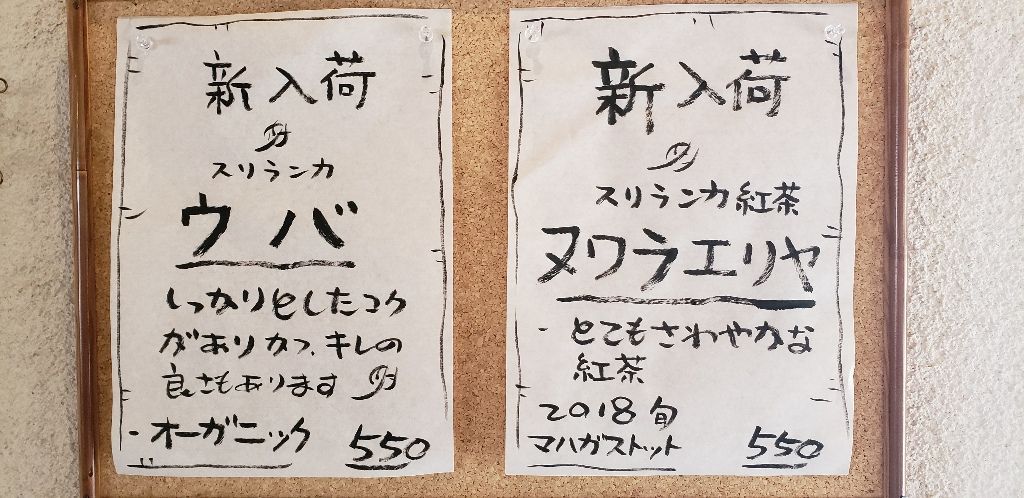 新入荷
スリランカ
ウバ
しっかりとしたコク
がありかつ、キレの
良さもあります
・オーガニック 550
新入荷
スリランカ紅茶
ヌワラエリヤ
・とてもさわやかな
紅茶
2018旬
マハガストット 550